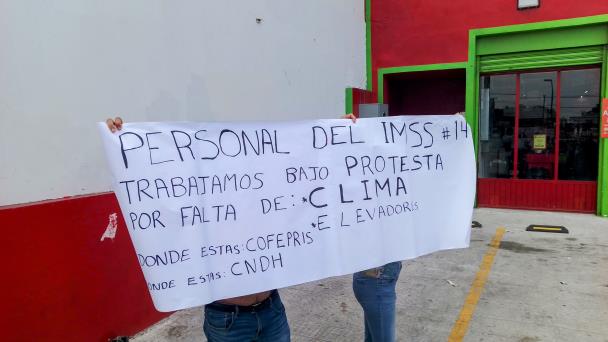 PERSONAL DEL IMSS #14
TRABAJAMOS BAJO PROTESTA
POR FALTA DE: *CLIMA
*ELEVADORIS
DONDE ESTAS: COFEPRIS
DONDE ESTAS: CNDH